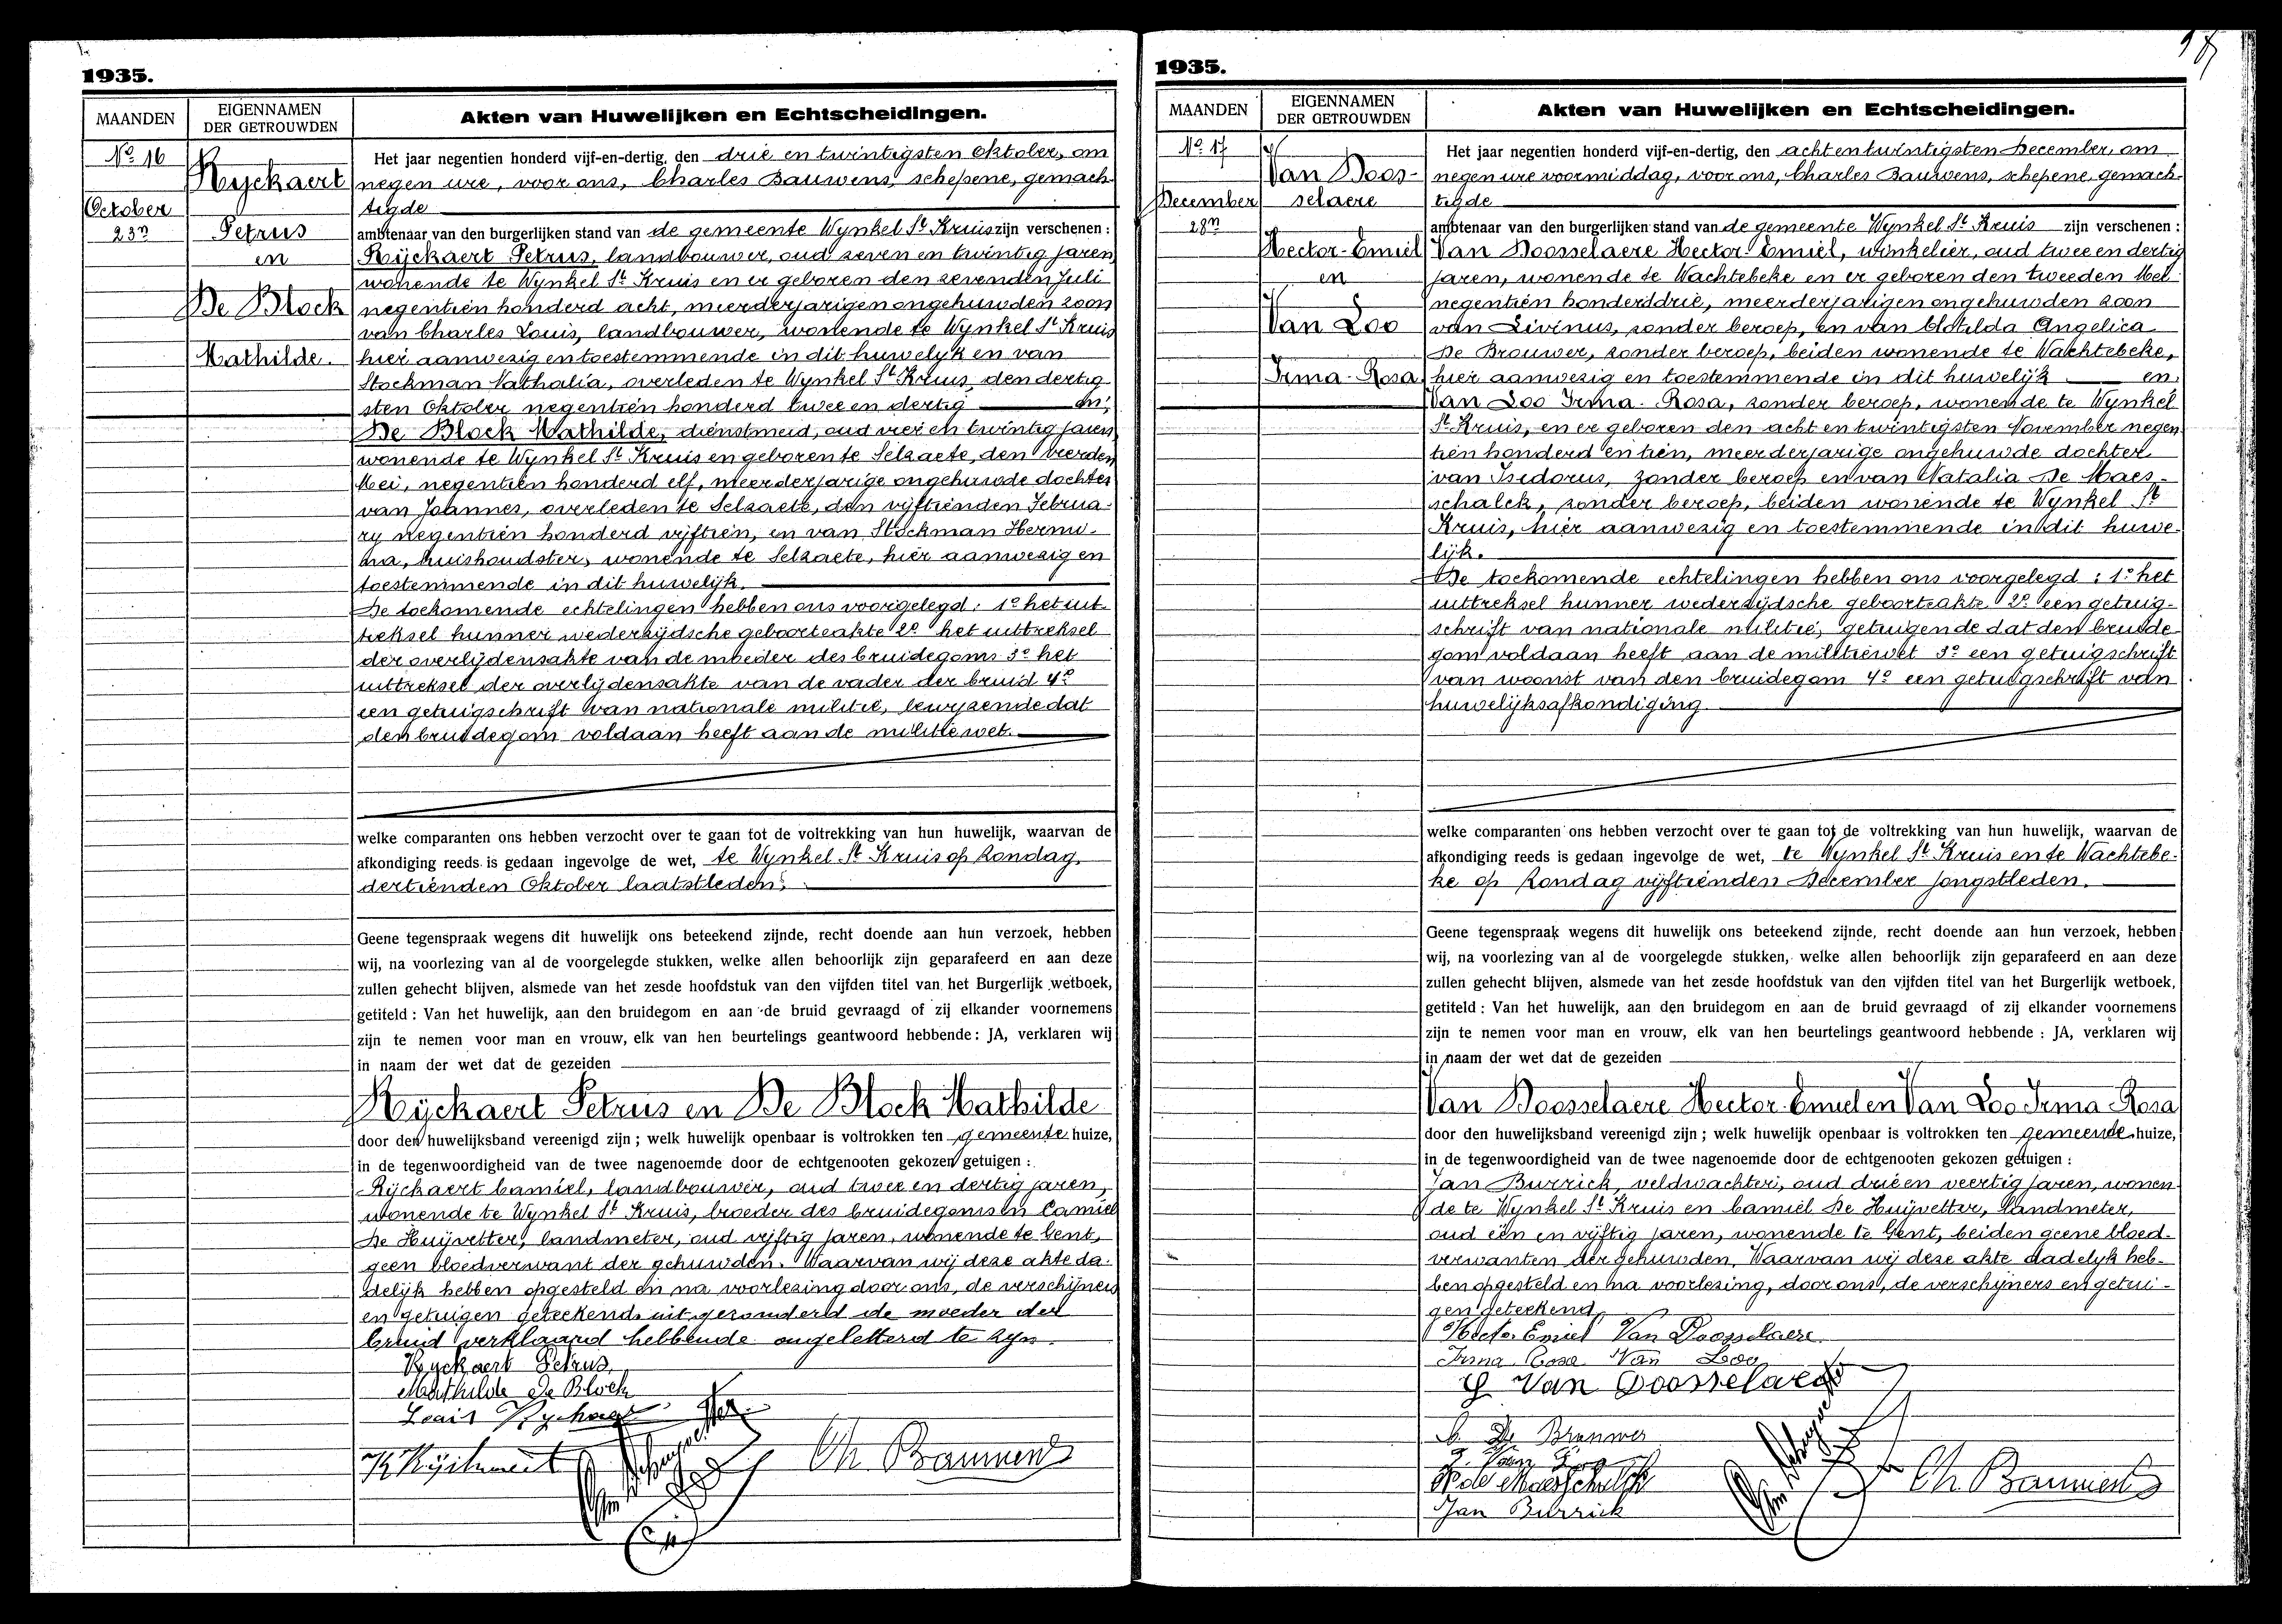 1935.
MAANDEN
EIGENNAMEN
DER GETROUWDEN
Akten van Huwelijken en Echtscheidingen.
No 16
October
23n
Ryckaert
Petrus
en
De Block
Mathilde.
Het jaar negentien honderd vijf-en-dertig, den drie en twintigsten Oktober, om
negen ure, voor ons, Charles Bauwens, schepene, gemach-
tigde
ambtenaar van den burgerlijken stand van de gemeente Wynkel St Kruis zijn verschenen :
Rijckaert Petrus, landbouwer, oud zeven en twintig jaren,
wonende te Wynkel St Kruis en er geboren den zevenden Juli
negentien honderd acht, meerderjarigen ongehuwden zoon
van Charles Louis, landbouwer, wonende te Wynkel St Kruis
hier aanwezig en toestemmende in dit huwelyk en van
Stockman Nathalia, overleden te Wynkel St Kruis, den dertig-
sten Oktober negentien honderd twee en dertig en;
De Block Mathilde, dienstmeid, oud vier en twintig jaren,
wonende te Wynkel St Kruis en geboren te Selzaete, den vierden
Mei, negentien honderd elf, meerderjarige ongehuwde dochter
van Joannes, overleden te Selzaete, den vyftienden Februa-
ry negentien honderd vyftien, en van Stockman Hermi-
na, huishoudster, wonende te Selzaete, hier aanwezig en
toestemmende in dit huwelijk.
De toekomende echtelingen hebben ons voorgelegd: 1o het uit-
treksel hunner wederzijdsche geboorteakte 2o het uittreksel
der overlijdensakte van de moeder des bruidegoms 3o het
uittreksel der overlijdensakte van de vader der bruid 4o
een getuigschrift van nationale militie, bewyzende dat
den bruidegom voldaan heeft aan de militiewet.
welke comparanten ons hebben verzocht over te gaan tot de voltrekking van hun huwelijk, waarvan de
afkondiging reeds is gedaan ingevolge de wet, te Wynkel St Kruis op Zondag,
dertienden Oktober laatstleden.
Geene tegenspraak wegens dit huwelijk ons beteekend zijnde, recht doende aan hun verzoek, hebben
wij, na voorlezing van al de voorgelegde stukken, welke allen behoorlijk zijn geparafeerd en aan deze
zullen gehecht blijven, alsmede van het zesde hoofdstuk van den vijfden titel van het Burgerlijk wetboek,
getiteld : Van het huwelijk, aan den bruidegom en aan de bruid gevraagd of zij elkander voornemens
zijn te nemen voor man en vrouw, elk van hen beurtelings geantwoord hebbende : JA, verklaren wij
in naam der wet dat de gezeiden
Rijckaert Petrus en De Block Mathilde
door den huwelijksband vereenigd zijn ; welk huwelijk openbaar is voltrokken ten gemeente huize,
in de tegenwoordigheid van de twee nagenoemde door de echtgenooten gekozen getuigen :
Rijckaert Camiel, landbouwer, oud twee en dertig jaren,
wonende te Wynkel St Kruis, broeder des bruidegoms en Camiel
De Huijvetter, landmeter, oud vijftig jaren, wonende te Gent,
geen bloedverwant der gehuwden. Waarvan wij deze akte da-
delijk hebben opgesteld en na voorlezing door ons, de verschijners
en getuigen geteekend, uit gezonderd de moeder der
bruid verklaard hebbende ongeletterd te zyn.
Ryckaert Petrus
Mathilde De Block
Louis Ryckaert
Ch Bauwens
1935.
MAANDEN
EIGENNAMEN
DER GETROUWDEN
Akten van Huwelijken en Echtscheidingen.
No 17
December
28n
Van Doos-
selaere
Hector-Emiel
en
Van Loo
Irma-Rosa
Het jaar negentien honderd vijf-en-dertig, den acht en twintigsten December, om
negen ure voormiddag, voor ons, Charles Bauwens, schepene, gemach-
tigde
ambtenaar van den burgerlijken stand van de gemeente Wynkel St Kruis zijn verschenen :
Van Doosselaere Hector-Emiel, winkelier, oud twee en dertig
jaren, wonende te Wachtebeke en er geboren den tweeden Mei
negentien honderd drie, meerderjarigen ongehuwden zoon
van Livinus, zonder beroep, en van Clotilda Angelica
De Brouwer, zonder beroep, beiden wonende te Wachtebeke,
hier aanwezig en toestemmende in dit huwelijk en;
Van Loo Irma-Rosa, zonder beroep, wonende te Wynkel
St Kruis, en er geboren den acht en twintigsten November negen
tien honderd en tien, meerderjarige ongehuwde dochter
van Isidorus, zonder beroep en van Natalia De Maes-
schalck, zonder beroep, beiden wonende te Wynkel St
Kruis, hier aanwezig en toestemmende in dit huwe-
lijk.
De toekomende echtelingen hebben ons voorgelegd : 1o het
uittreksel hunner wederzijdsche geboorteakte 2o een getuig-
schrift van nationale militie, getuigende dat den bruide-
gom voldaan heeft aan de militiewet 3o een getuigschrift
van woonst van den bruidegom 4o een getuigschrift van
huwelijksafkondiging.
welke comparanten ons hebben verzocht over te gaan tot de voltrekking van hun huwelijk, waarvan de
afkondiging reeds is gedaan ingevolge de wet, te Wynkel St Kruis en te Wachtebe-
ke op Zondag vijftienden December jongstleden.
Geene tegenspraak wegens dit huwelijk ons beteekend zijnde, recht doende aan hun verzoek, hebben
wij, na voorlezing van al de voorgelegde stukken, welke allen behoorlijk zijn geparafeerd en aan deze
zullen gehecht blijven, alsmede van het zesde hoofdstuk van den vijfden titel van het Burgerlijk wetboek,
getiteld : Van het huwelijk, aan den bruidegom en aan de bruid gevraagd of zij elkander voornemens
zijn te nemen voor man en vrouw, elk van hen beurtelings geantwoord hebbende : JA, verklaren wij
in naam der wet dat de gezeiden
Van Doosselaere Hector-Emiel en Van Loo Irma-Rosa
door den huwelijksband vereenigd zijn ; welk huwelijk openbaar is voltrokken ten gemeente huize,
in de tegenwoordigheid van de twee nagenoemde door de echtgenooten gekozen getuigen :
Jan Burrick, veldwachter, oud drie en veertig jaren, wonen-
de te Wynkel St Kruis en Camiel De Huijvetter, landmeter,
oud een en vijftig jaren, wonende te Gent, beiden geene bloed-
verwanten der gehuwden. Waarvan wij deze akte dadelyk heb-
ben opgesteld en na voorlezing, door ons, de verschijners en getui-
gen geteekend.
Hector Emiel Van Doosselaere
Irma Rosa Van Loo
Van Doosselaere
De Brouwer
Van Loo
N de Maesschalck
Jan Burrick
Ch. Bauwens